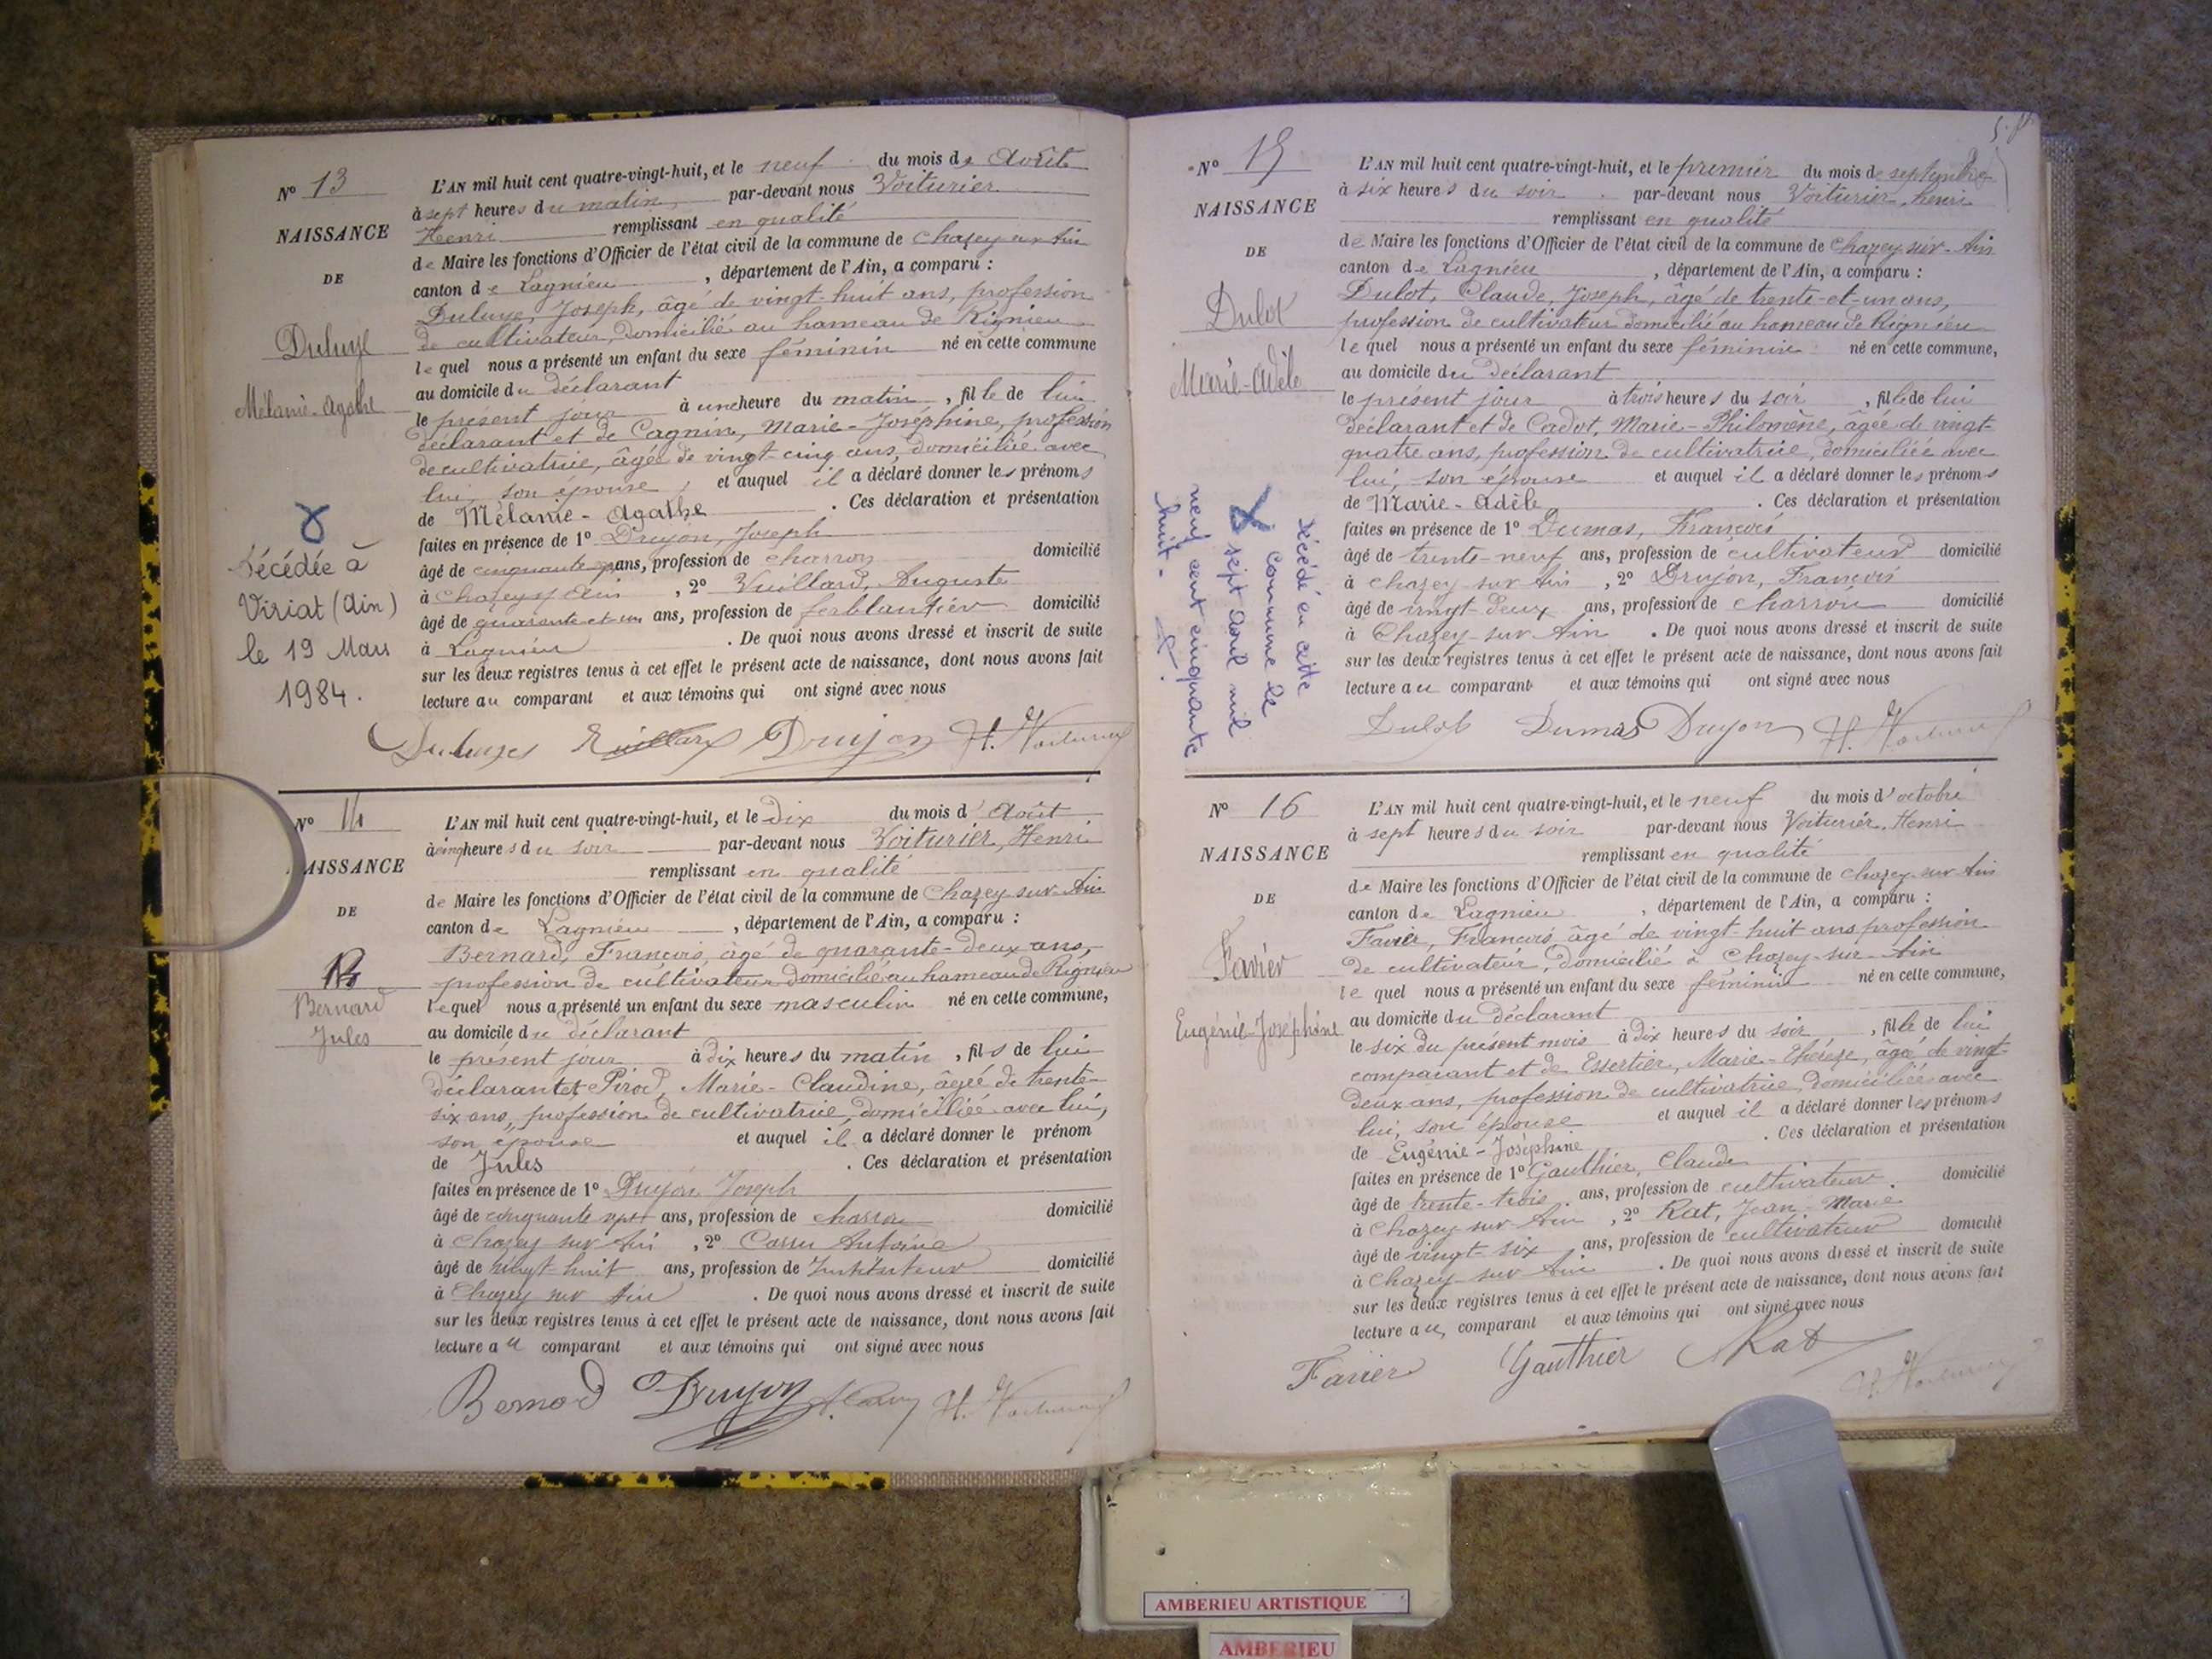 N° 13
NAISSANCE
DE
Duluye
Mélanie-Agathe
Décédée à
Viriat (Ain)
le 19 Mars
1984.
L'AN mil huit cent quatre-vingt-huit, et le neuf du mois de Août
à sept heures du matin, par-devant nous Voiturier
Henri remplissant en qualité
de Maire les fonctions d'Officier de l'état civil de la commune de Chazey-sur-Ain
canton de Lagnieu, département de l'Ain, a comparu :
Duluye, Joseph, âgé de vingt-huit ans, profession
de cultivateur, domicilié au hameau de Rignieu
lequel nous a présenté un enfant du sexe féminin né en cette commune
au domicile du déclarant
le présent jour à une heure du matin, fille de lui
déclarant et de Cagnin, Marie-Joséphine, profession
de cultivatrice, âgée de vingt-cinq ans, domiciliée avec
lui, son épouse, et auquel il a déclaré donner les prénoms
de Mélanie-Agathe. Ces déclaration et présentation
faites en présence de 1° Drujon, Joseph
âgé de cinquante ans, profession de charron domicilié
à Chazey s/ Ain, 2° Vuillard, Auguste
âgé de quarante et un ans, profession de ferblantier domicilié
à Lagnieu. De quoi nous avons dressé et inscrit de suite
sur les deux registres tenus à cet effet le présent acte de naissance, dont nous avons fait
lecture au comparant et aux témoins qui ont signé avec nous
Duluye Vuillard Drujon H. Voiturier
N° 14
NAISSANCE
DE
Bernard
Jules
L'AN mil huit cent quatre-vingt-huit, et le dix du mois d'Août
à cinq heures du soir par-devant nous Voiturier, Henri
remplissant en qualité
de Maire les fonctions d'Officier de l'état civil de la commune de Chazey-sur-Ain
canton de Lagnieu, département de l'Ain, a comparu :
Bernard, François, âgé de quarante-deux ans,
profession de cultivateur domicilié au hameau de Rignieu
lequel nous a présenté un enfant du sexe masculin né en cette commune,
au domicile du déclarant
le présent jour à dix heures du matin, fils de lui
déclarant et Pirod, Marie-Claudine, âgée de trente-
six ans, profession de cultivatrice, domiciliée avec lui,
son épouse et auquel il a déclaré donner le prénom
de Jules. Ces déclaration et présentation
faites en présence de 1° Drujon Joseph
âgé de cinquante sept ans, profession de charron domicilié
à Chazey sur Ain, 2° Antoine
âgé de vingt-huit ans, profession de Instituteur domicilié
à Chazey sur Ain. De quoi nous avons dressé et inscrit de suite
sur les deux registres tenus à cet effet le présent acte de naissance, dont nous avons fait
lecture au comparant et aux témoins qui ont signé avec nous
Bernard Drujon H. Voiturier
N° 15
NAISSANCE
DE
Dulot
Marie-Adèle
Décédé en cette
commune le
sept avril mil
neuf cent cinquante
huit.
L'AN mil huit cent quatre-vingt-huit, et le premier du mois de septembre
à six heures du soir par-devant nous Voiturier, henri
remplissant en qualité
de Maire les fonctions d'Officier de l'état civil de la commune de Chazey-sur-Ain
canton de Lagnieu, département de l'Ain, a comparu :
Dulot, Claude, Joseph, âgé de trente-et-un ans,
profession de cultivateur domicilié au hameau de Rignieu
lequel nous a présenté un enfant du sexe féminin né en cette commune,
au domicile du déclarant
le présent jour à trois heures du soir, fille de lui
déclarant et de Cadot, Marie-Philomène, âgée de vingt-
quatre ans, profession de cultivatrice, domiciliée avec
lui, son épouse et auquel il a déclaré donner les prénoms
de Marie-Adèle. Ces déclaration et présentation
faites en présence de 1° Dumas, François
âgé de trente-neuf ans, profession de cultivateur domicilié
à Chazey sur Ain, 2° Drujon, François
âgé de vingt-deux ans, profession de charron domicilié
à Chazey-sur-Ain. De quoi nous avons dressé et inscrit de suite
sur les deux registres tenus à cet effet le présent acte de naissance, dont nous avons fait
lecture au comparant et aux témoins qui ont signé avec nous
Dulot Dumas Drujon H. Voiturier
N° 16
NAISSANCE
DE
Favier
Eugénie-Joséphine
L'AN mil huit cent quatre-vingt-huit, et le neuf du mois d'octobre
à sept heures du soir par-devant nous Voiturier, Henri
remplissant en qualité
de Maire les fonctions d'Officier de l'état civil de la commune de Chazey-sur-Ain
canton de Lagnieu, département de l'Ain, a comparu :
Favier, François âgé de vingt-huit ans profession
de cultivateur, domicilié à Chazey-sur-Ain
lequel nous a présenté un enfant du sexe féminin né en cette commune,
au domicile du déclarant
le six du présent mois à dix heures du soir, fille de lui
comparant et de Essertier, Marie-Thérèze, âgée de vingt-
deux ans, profession de cultivatrice domiciliée avec
lui, son épouse et auquel il a déclaré donner les prénoms
de Eugénie-Joséphine. Ces déclaration et présentation
faites en présence de 1° Gauthier, Claude
âgé de trente-trois ans, profession de cultivateur domicilié
à Chazey sur Ain, 2° Rat, Jean-Marie
âgé de vingt-six ans, profession de cultivateur domicilié
à Chazey-sur Ain. De quoi nous avons dressé et inscrit de suite
sur les deux registres tenus à cet effet le présent acte de naissance, dont nous avons fait
lecture au comparant et aux témoins qui ont signé avec nous
Favier Gauthier Rat
H. Voiturier
AMBERIEU ARTISTIQUE
AMBERIEU